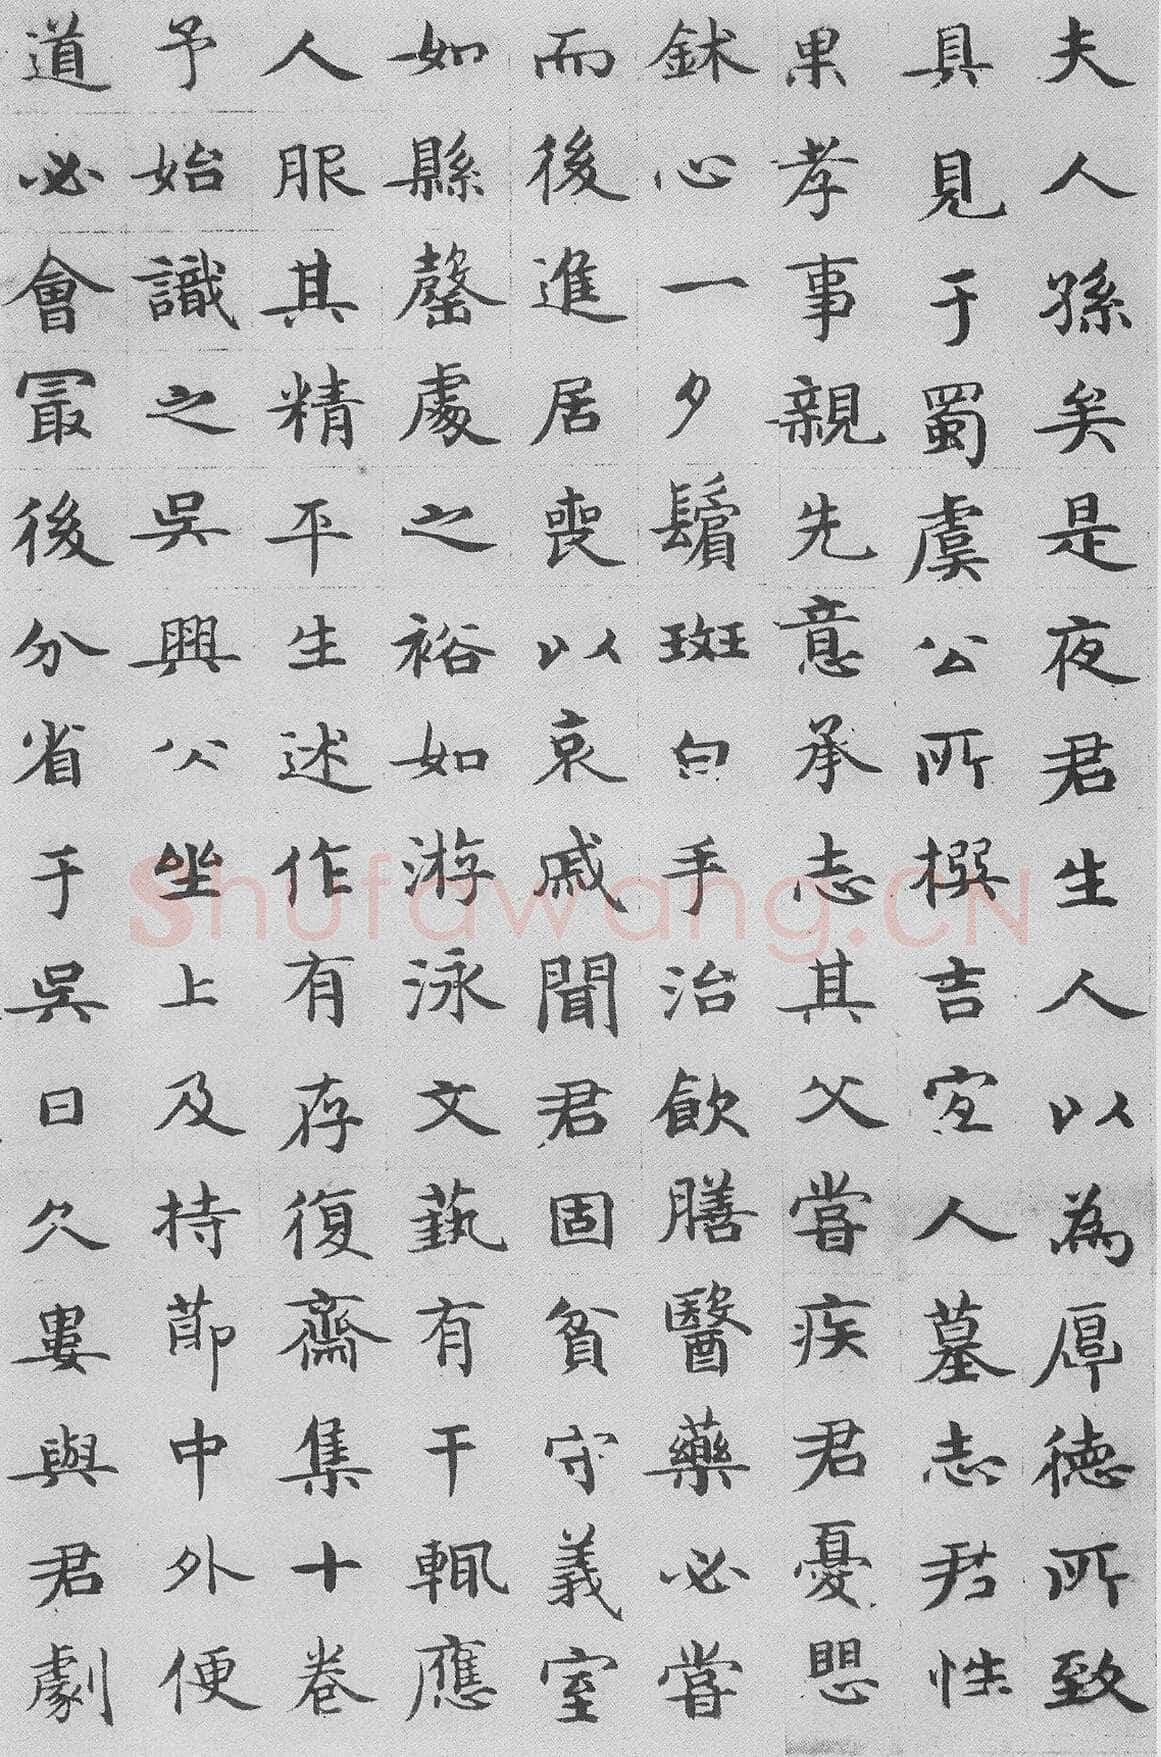 夫人孫矣是夜君生人以為厚德所致
具見于蜀虞公所撰吉宜人墓志君性
果孝事親先意承志其父嘗疾君憂思
鉥心一夕鬢斑白手治飲膳醫藥必嘗
而後進居喪以哀戚聞君固貧守義室
如縣罄處之裕如游泳文藝有干輒應
人服其精平生述作有存復齋集十卷
予始識之吳興公坐上及持節中外便
道必會冣後分省于吳日久婁與君劇
Shufawang.CN